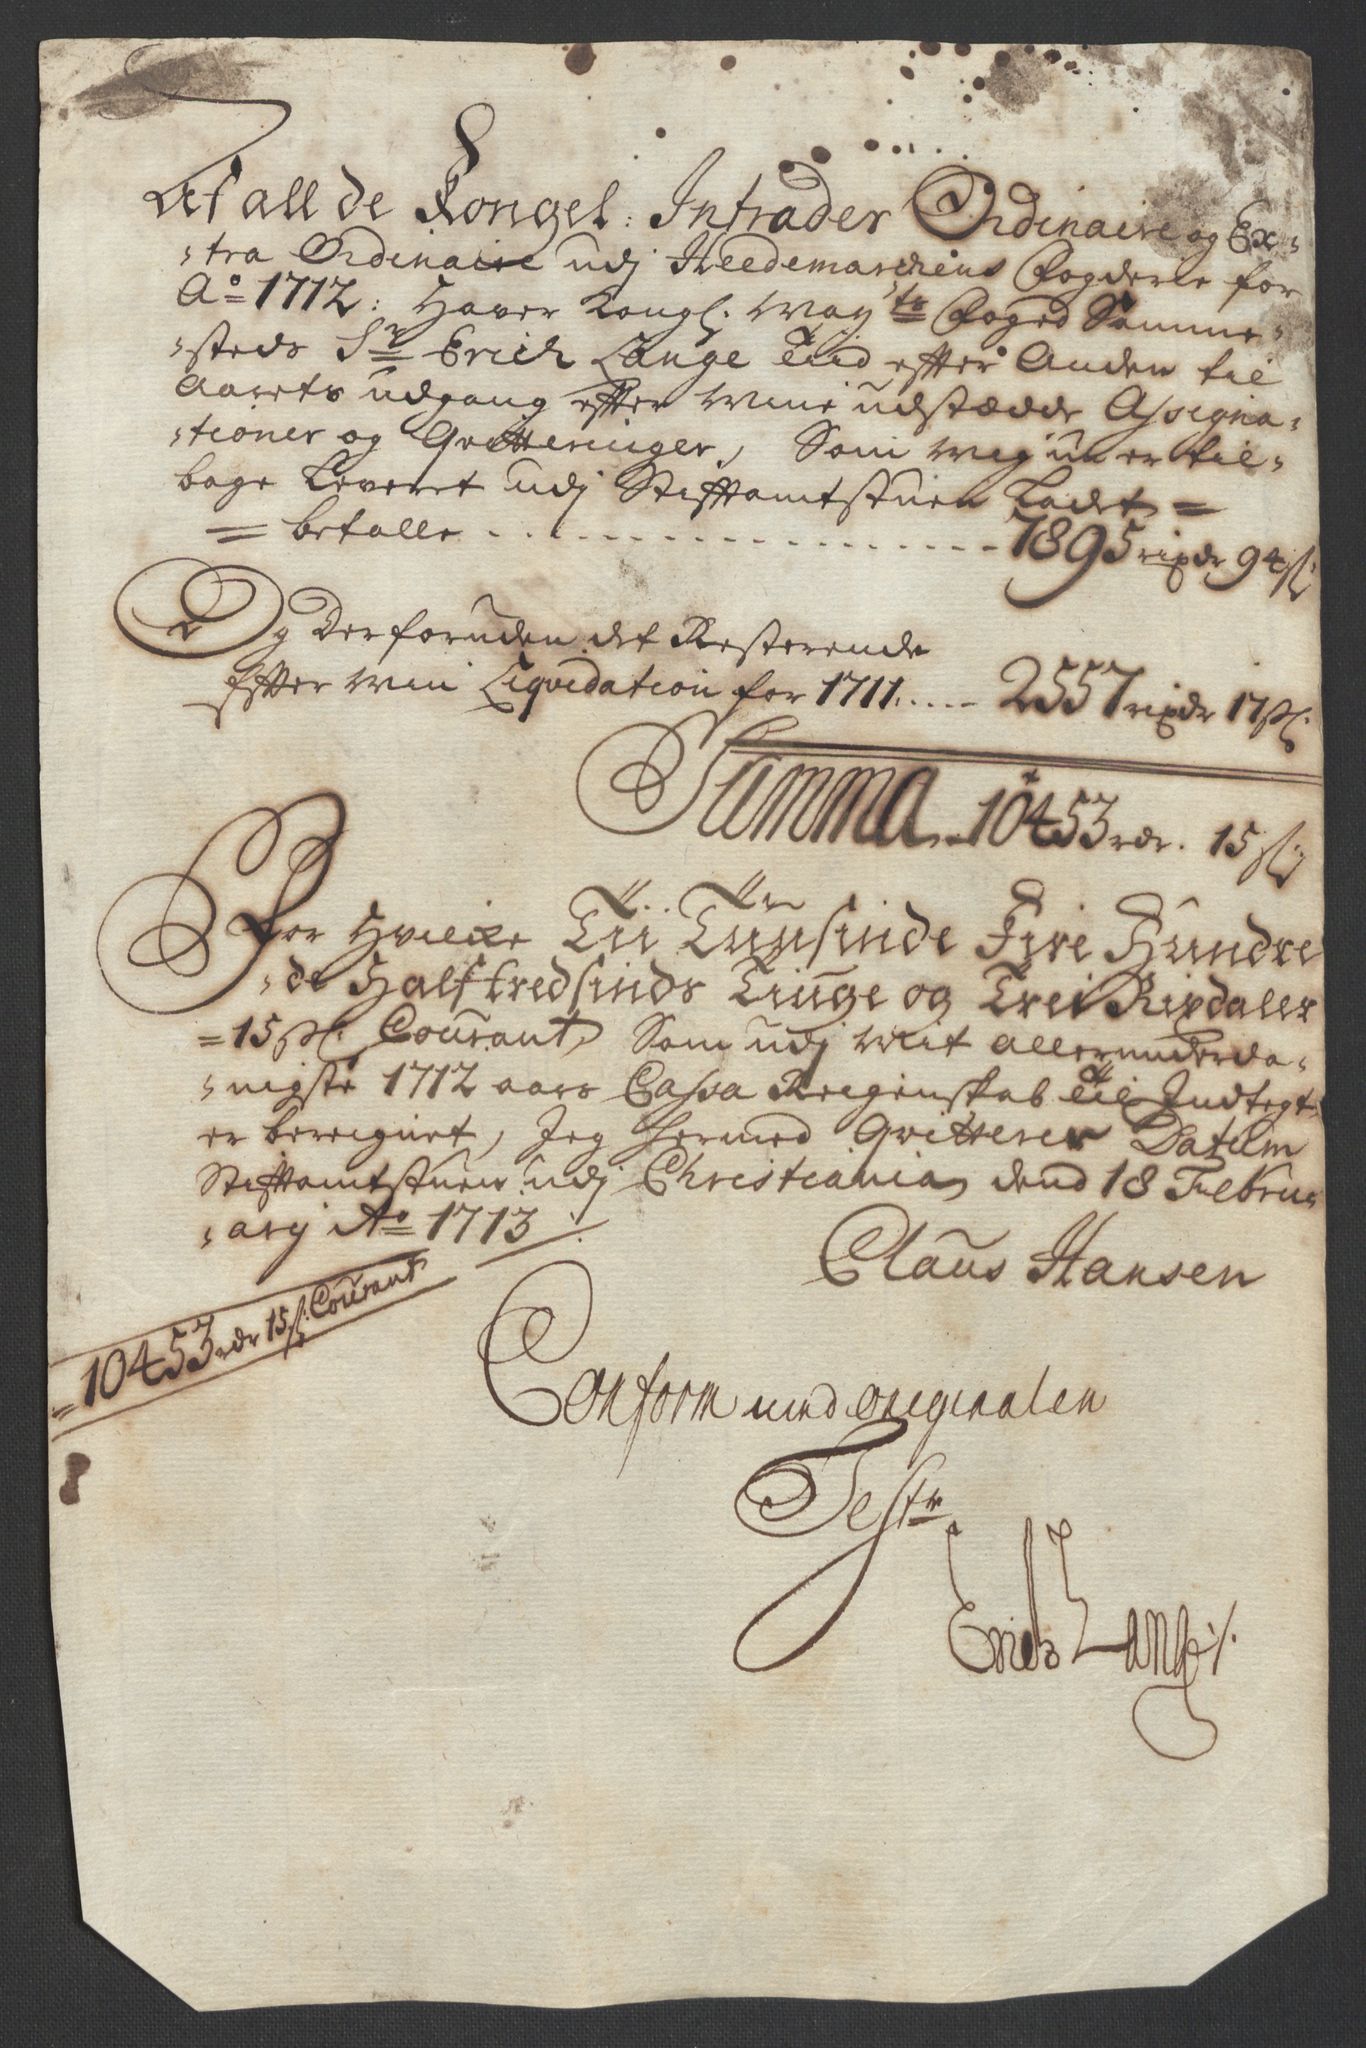 Af all de Kongel: Intrader Ordinaire og Ex-
-tra Ordinaire udj Heedemarckens Fogderie for
Ao 1712: Haver Kongl. May:ts Foged Samme-
-steds Sr Erich Lange Tiid efter Anden til
Aarets udgang efter mine udstædde Assigna-
-tioner og Qvitteringer, Som mig nu er til-
bage Leveret udj Stifftamtstuen Ladet =
= betalle . . . . . . 7895 rixdr 94 s:
Og Derforuden det Resterende
Efter min Liqvidation for 1711 . . . . 2557 rixdr 17 s:
Summa 10453 rdr. 15 s:
For Hvilcke Tii Tuusinde Fire Hundre
-de Halftredsinds Tiuge og Trei Rixdaler
=15 s: Courant, Som udj mit allerunderda-
-nigste 1712 aars Cassa Reigenskab til Indtegt
er bereignet, Jeg hermed Qvitterer Datum
Stifftamtstuen udj Christiania dend 18 Febru-
-arij Ao 1713
Claus Hansen
=10453 rdr 15 s: Courant
Conform med originalen
Test:
Erich Lange